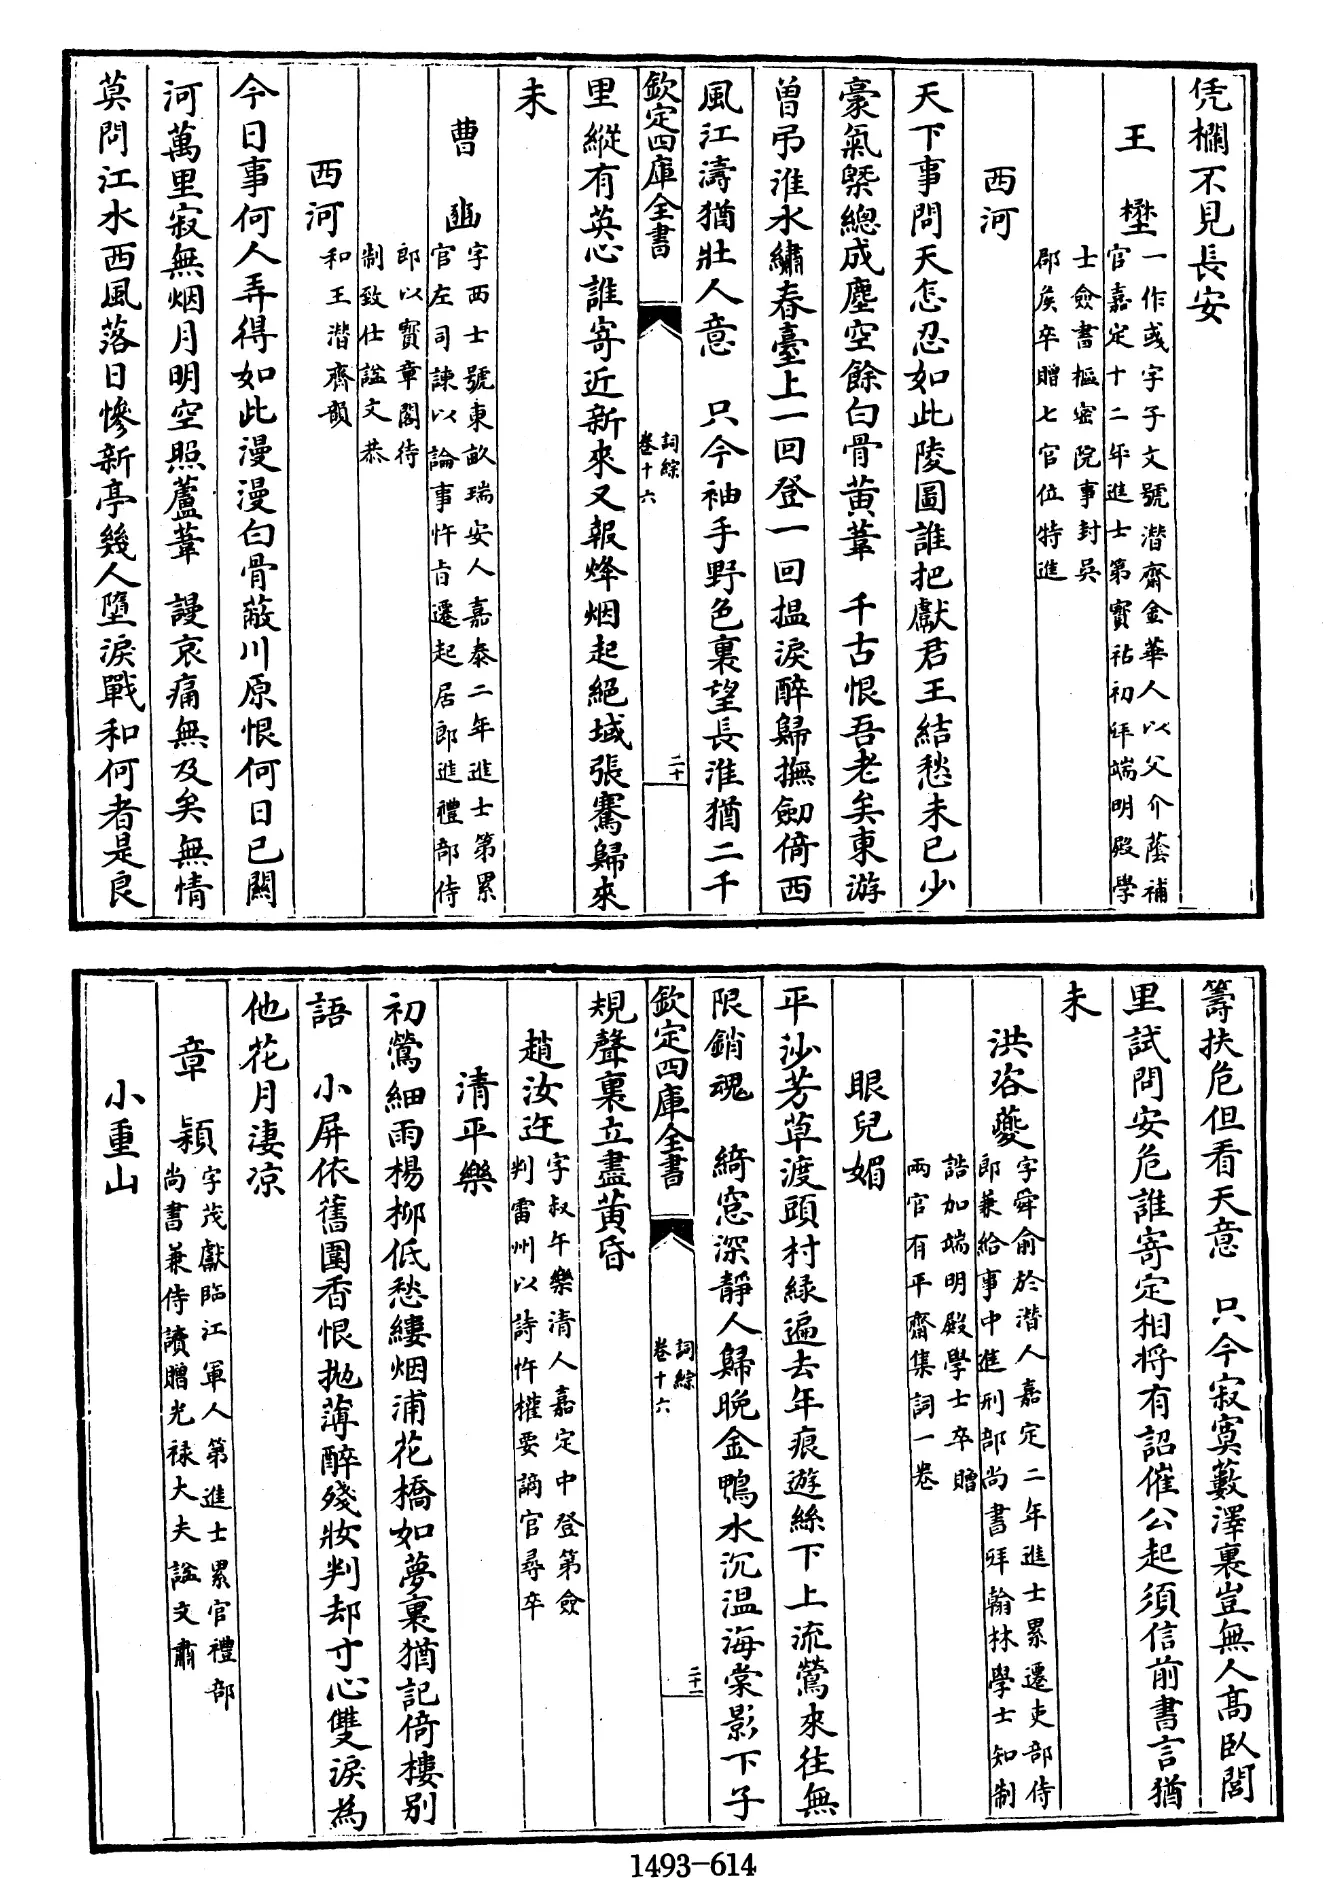 凭欄不見長安
王 埜 一作或字子文號潛齋金華人以父介蔭補
官嘉定十二年進士第寳祐初拜端明殿學
士僉書樞密院事封吳
郡矦卒贈七官位特進
西河
天下事問天怎忍如此陵圖誰把獻君王結愁未已少
豪氣槩總成塵空餘白骨黄葦 千古恨吾老矣東游
曽弔淮水繡春臺上一回登一回搵淚醉歸撫劒倚西
風江濤猶壯人意 只今袖手野色裏望長淮猶二千
欽定四庫全書
詞綜
卷十六
二十
里縱有英心誰寄近新來又報烽烟起絕域張騫歸來
未
曹 豳 字西士號東畝瑞安人嘉泰二年進士第累
官左司諫以論事忤旨遷起居郎進禮部侍
郎以寳章閣待
制致仕謚文恭
西河 和王潛齋韻
今日事何人弄得如此漫漫白骨蔽川原恨何日已闗
河萬里寂無烟月明空照蘆葦 謾哀痛無及矣無情
莫問江水西風落日慘新亭幾人墮淚戰和何者是良
籌扶危但看天意 只今寂寞藪澤裏豈無人髙臥閭
里試問安危誰寄定相將有詔催公起須信前書言猶
未
洪咨夔 字舜俞於潛人嘉定二年進士累遷吏部侍
郎兼給事中進刑部尚書拜翰林學士知制
誥加端明殿學士卒贈
兩官有平齋集詞一卷
眼兒媚
平沙芳草渡頭村緑遍去年痕遊絲下上流鶯來往無
限銷魂 綺窓深靜人歸晚金鴨水沉温海棠影下子
欽定四庫全書
詞綜
卷十六
二十一
規聲裏立盡黄昏
趙汝迕 字叔午樂清人嘉定中登第僉
判雷州以詩忤權要謫官尋卒
清平樂
初鶯細雨楊柳低愁縷烟浦花橋如夢裏猶記倚樓别
語 小屏依舊圍香恨抛薄醉殘妝判却寸心雙淚為
他花月淒凉
章 頴 字茂獻臨江軍人第進士累官禮部
尚書兼侍讀贈光禄大夫謚文肅
小重山
1493-614